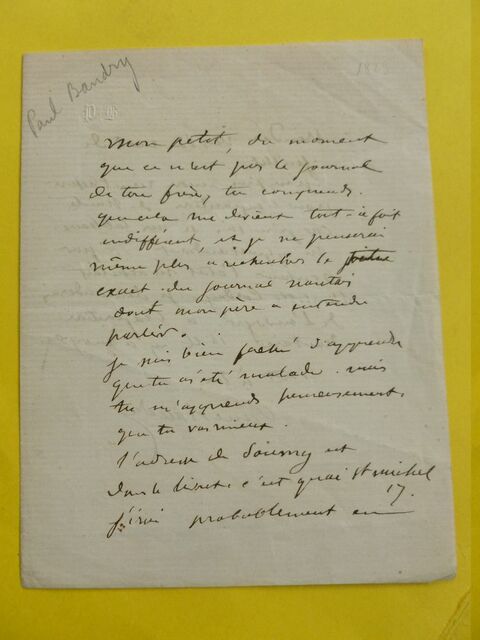 Paul Baudry
P B
mon petit, du moment
que ce n'est pas le journal
de ton frère, tu comprends
que cela me devient tout-à-fait
indifférent, et je ne penserai
même plus à rechercher le
exact du journal nantais
dont mon père a entendu
parler.
je suis bien faché d'apprendre
que tu as été malade. mais
tu m'apprends heureusement
que tu vas mieux.
l'adresse de Soumy est
dans le livret. c'est quai St michel
17.
j'irai probablement en